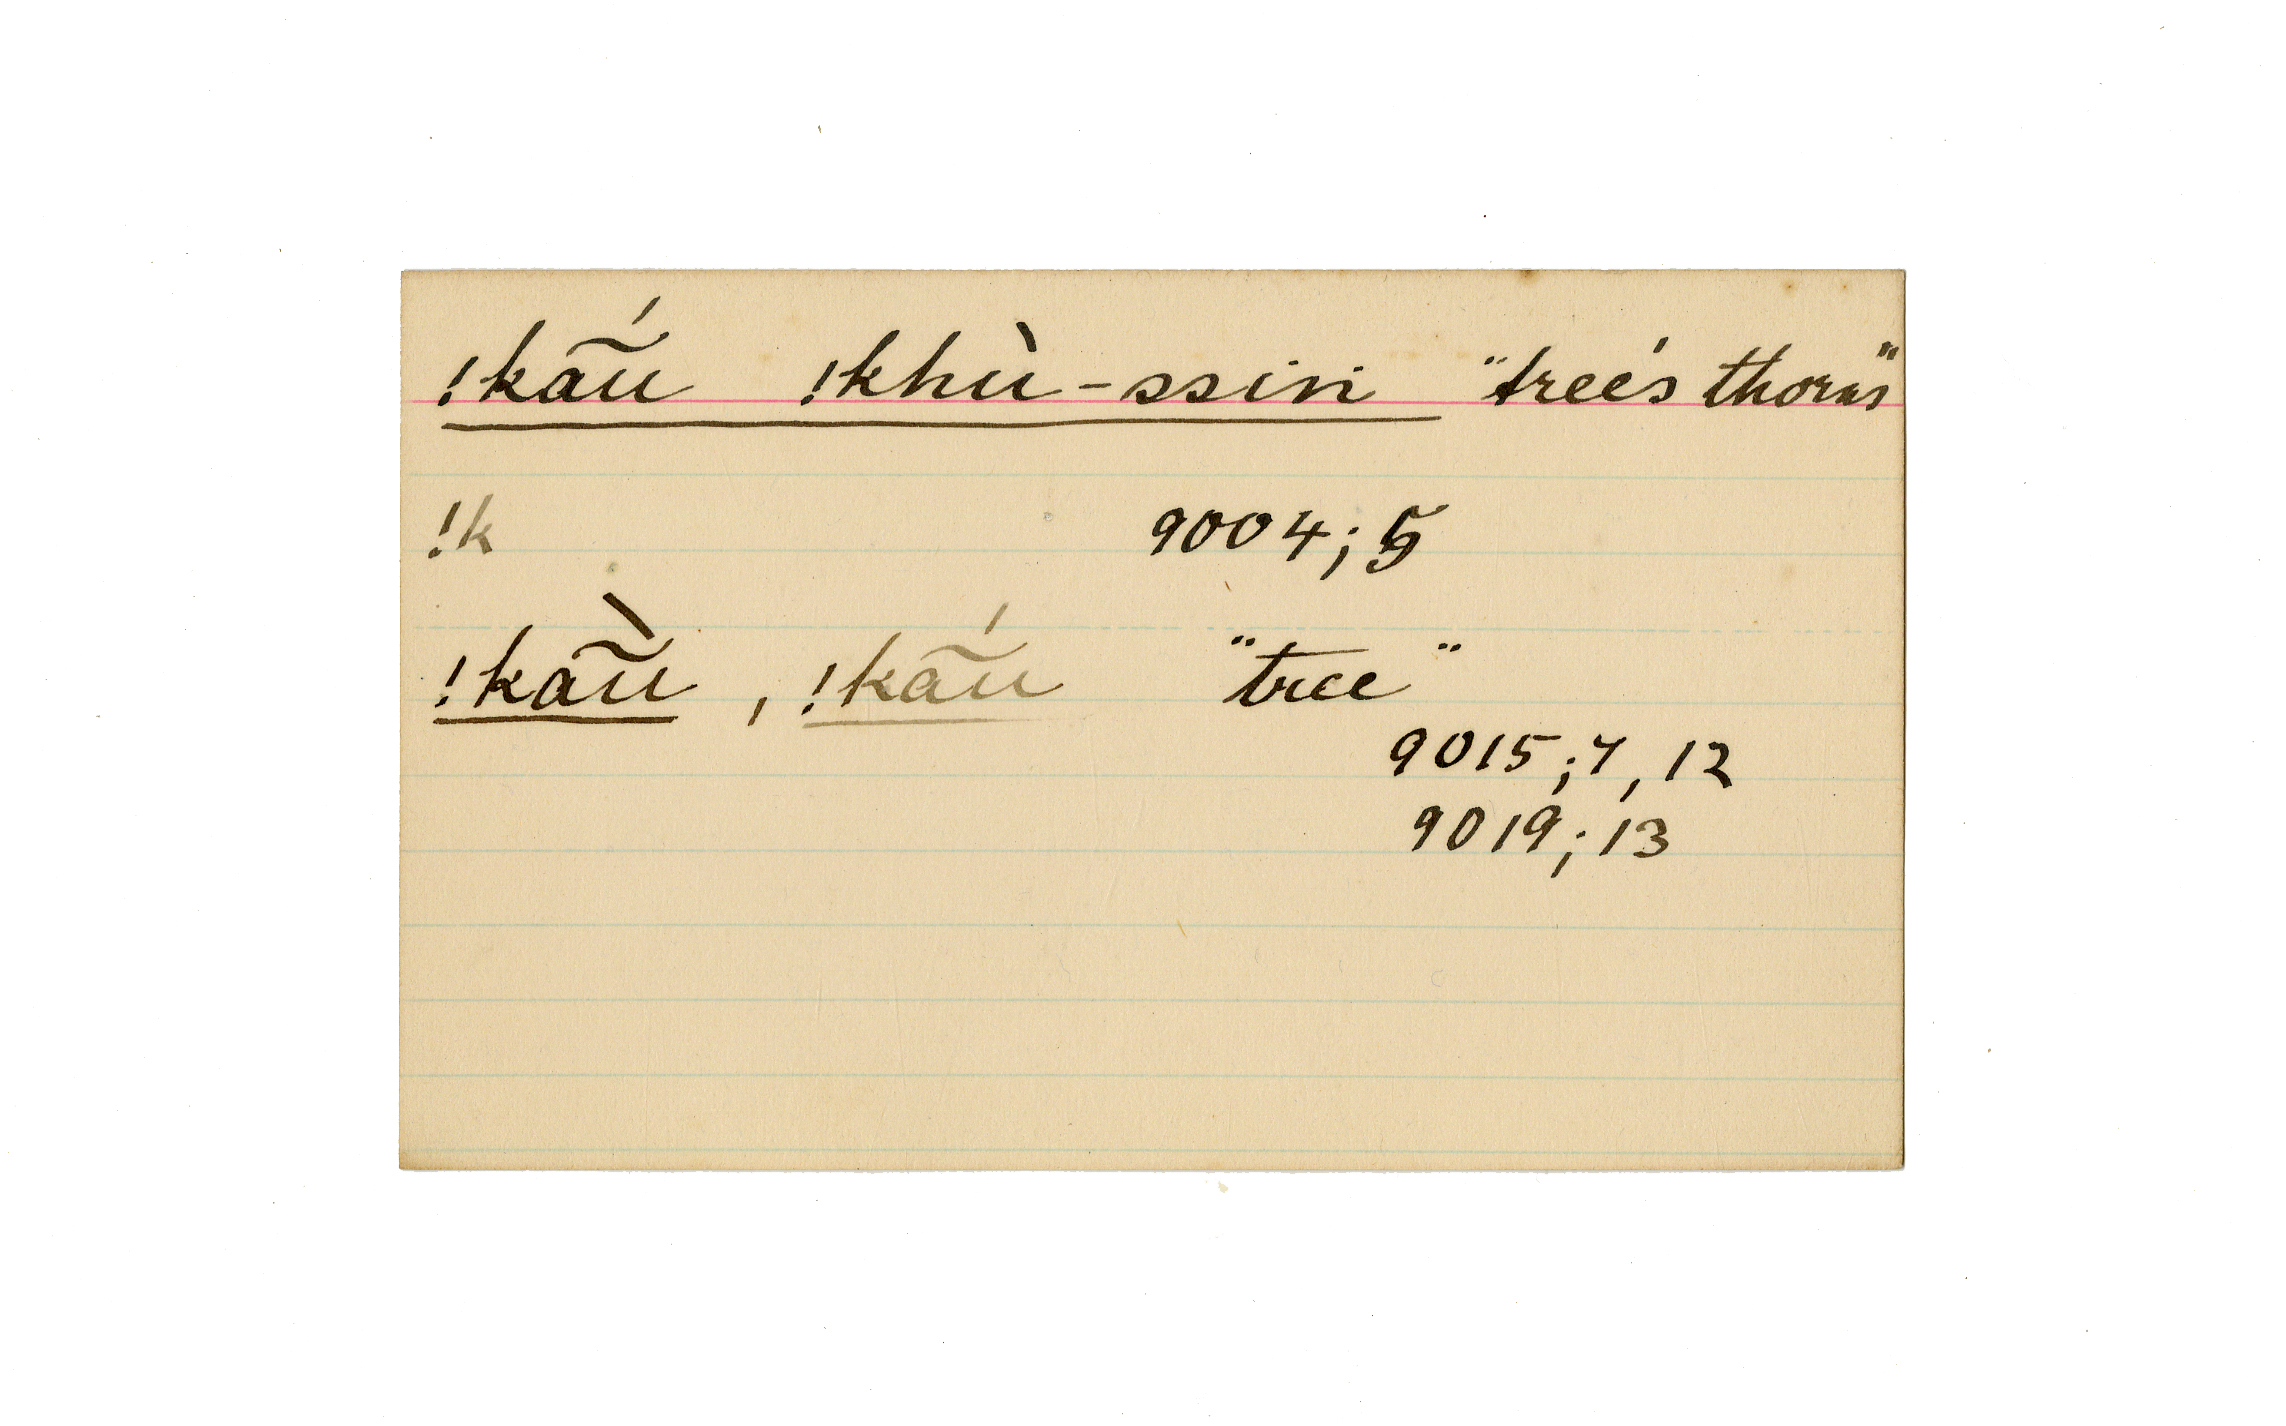 !kã́u !khù-ssin "tree's thorns"
!k 9004; 5
!kã̀u , !kã́u "tree"
9015; 7, 12
9019; 13